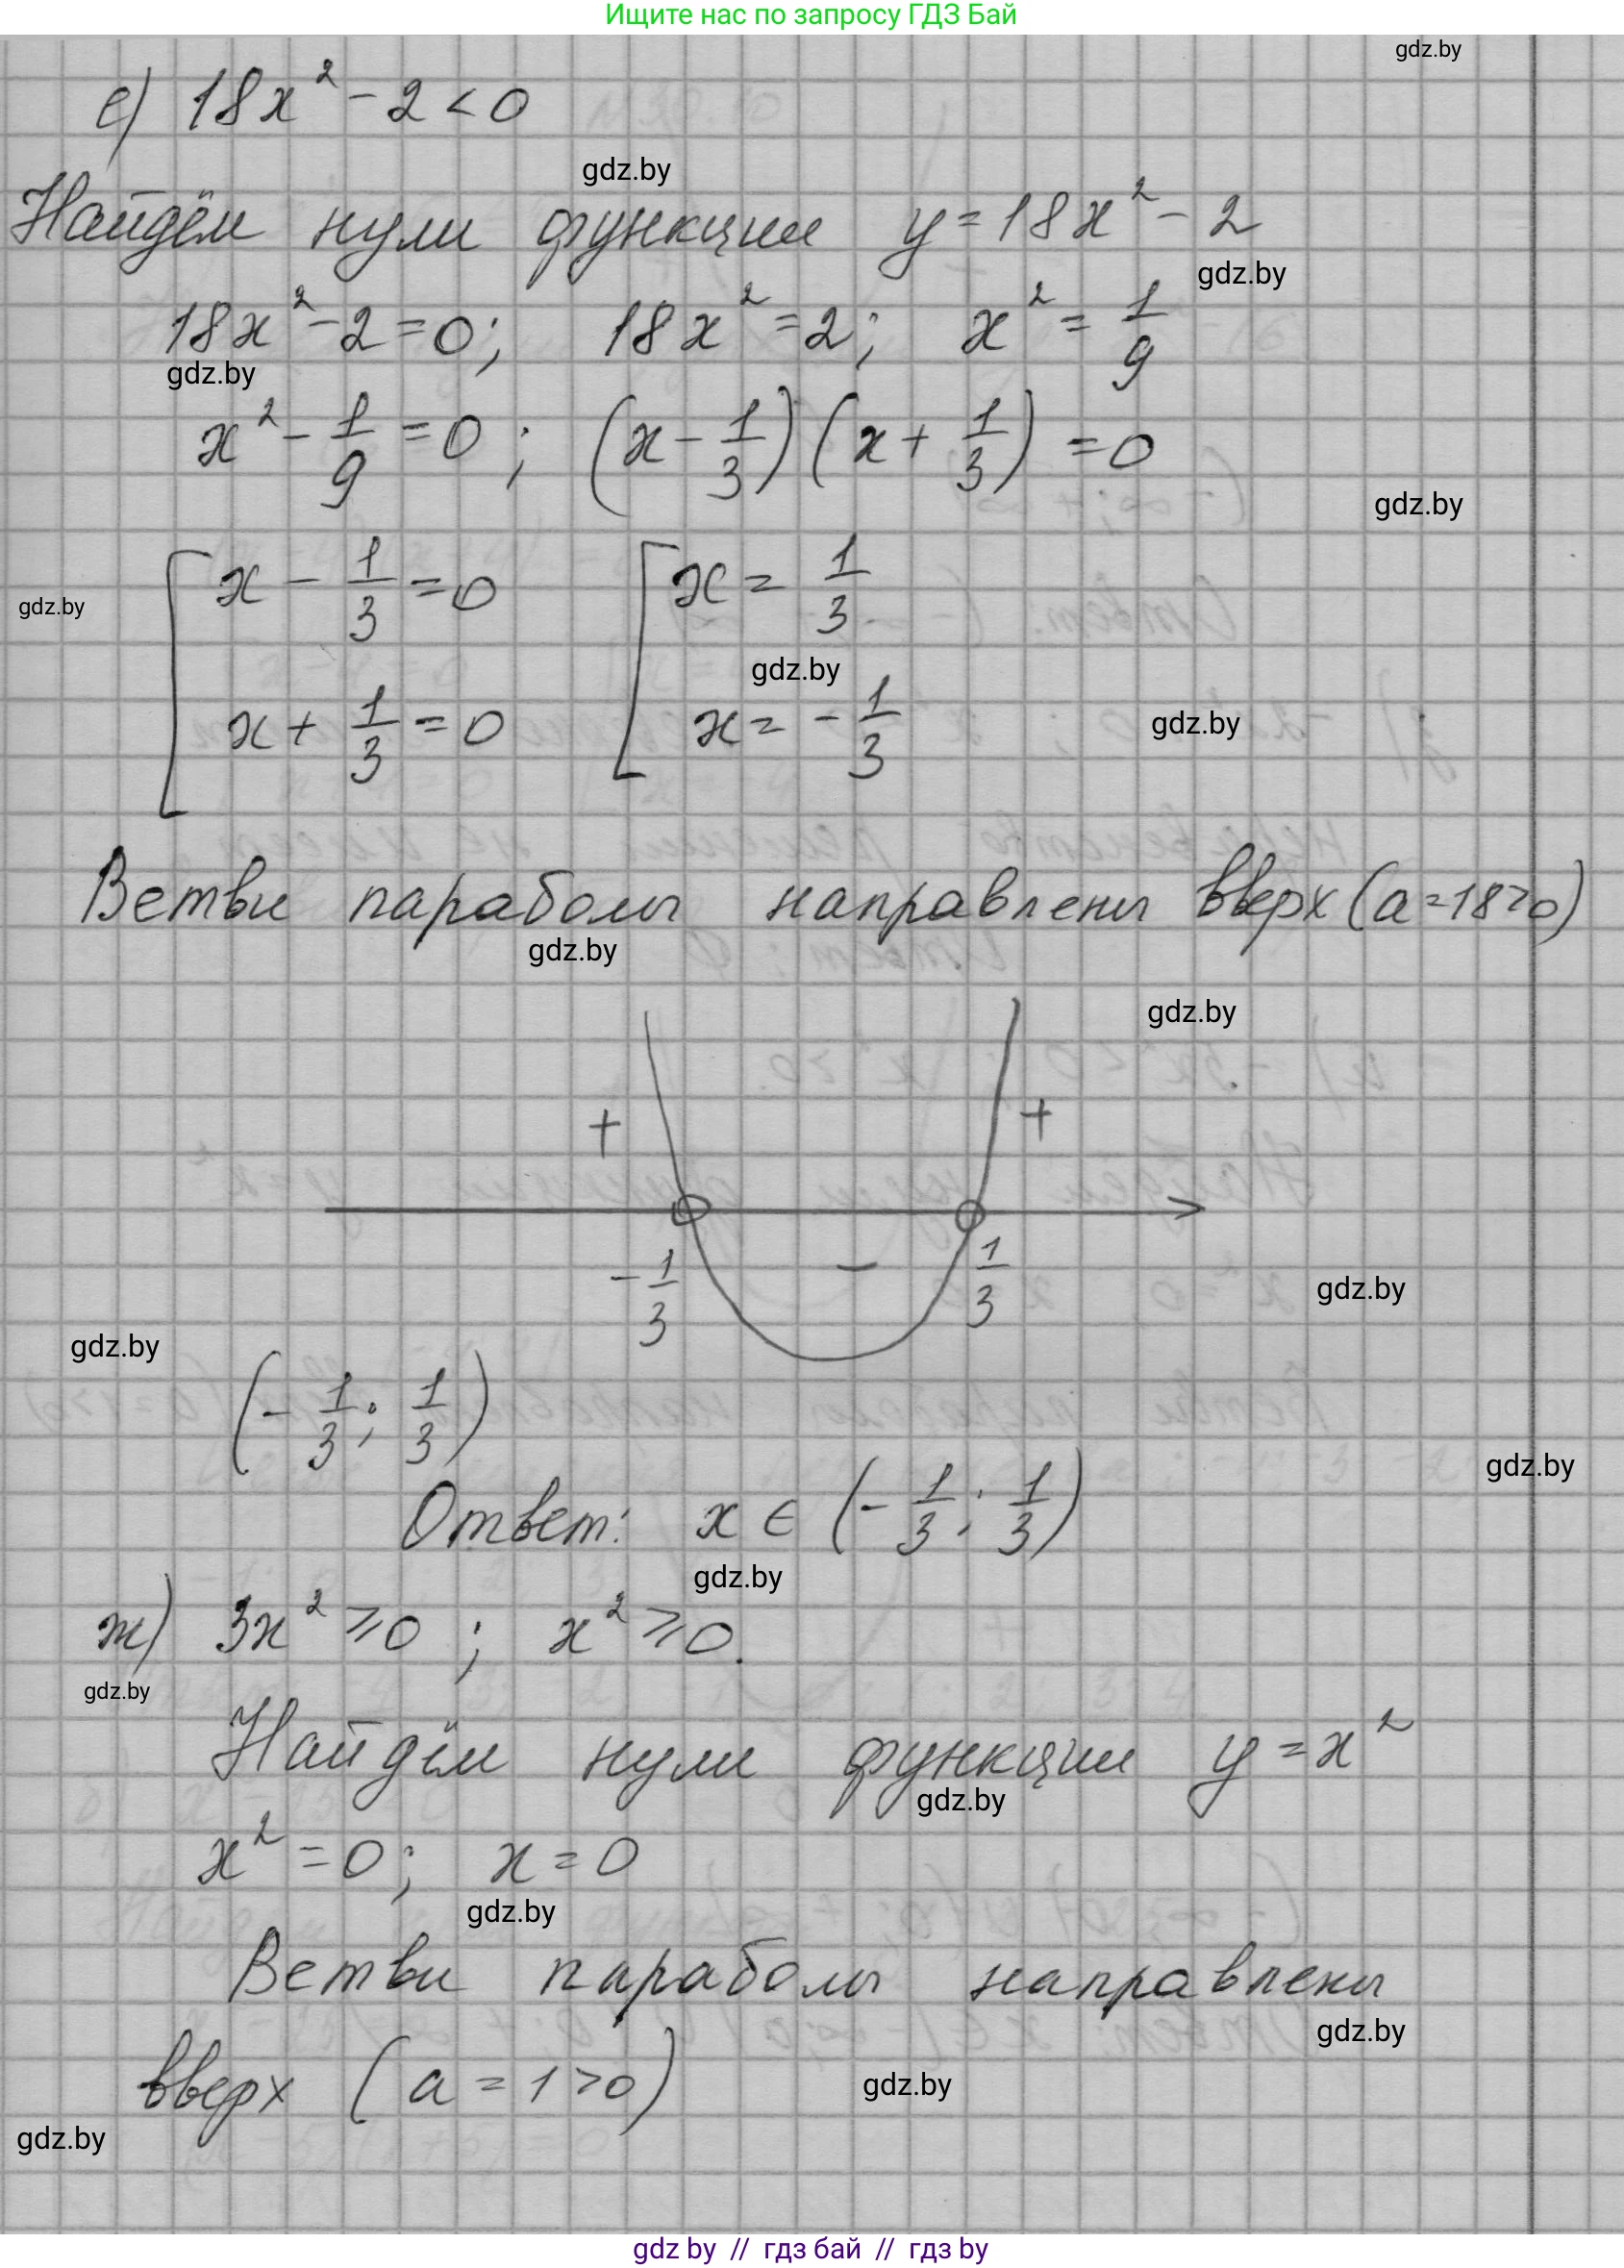 Ищите нас по запросу ГДЗ Бай
gdz.by
е) 18x² - 2 < 0
gdz.by
Найдём нули функции y = 18x² - 2
gdz.by
18x² - 2 = 0; 18x² = 2; x² = 1/9
gdz.by
x² - 1/9 = 0; (x - 1/3)(x + 1/3) = 0
gdz.by
[ x - 1/3 = 0 [ x = 1/3
gdz.by
gdz.by
x + 1/3 = 0 x = - 1/3
gdz.by
Ветви параболы направлены вверх (a = 18 > 0)
gdz.by
gdz.by
+ +
-1/3 - 1/3
gdz.by
gdz.by
(- 1/3; 1/3)
gdz.by
Ответ: x ∈ (- 1/3; 1/3)
gdz.by
ж) 3x² ⩾ 0; x² ⩾ 0.
gdz.by
Найдём нули функции y = x²
gdz.by
x² = 0; x = 0
gdz.by
Ветви параболы направлены
gdz.by
вверх (a = 1 > 0)
gdz.by
gdz.by
gdz by // гдз бай // гдз by